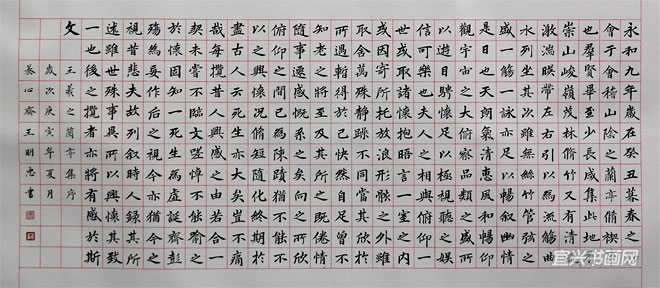 永和九年歲在癸丑暮春之初
會于會稽山陰之蘭亭脩禊事
也群賢畢至少長咸集此地有
崇山峻嶺茂林脩竹又有清流
激湍映帶左右引以為流觴曲
水列坐其次雖無絲竹管弦之
盛一觴一詠亦足以暢叙幽情
是日也天朗氣清惠風和暢仰
觀宇宙之大俯察品類之盛所
以遊目騁懷足以極視聽之娛
信可樂也夫人之相與俯仰一
世或取諸懷抱晤言一室之內
或因寄所託放浪形骸之外雖
取舍萬殊靜躁不同當其欣於
所遇暫得於己快然自足曾不
知老之將至及其所之既倦情
隨事遷感慨係之矣向之所欣
俯仰之間已為陳跡猶不能不
以之興懷況脩短隨化終期於
盡古人云死生亦大矣豈不痛
哉每攬昔人興感之由若合一
契未嘗不臨文嗟悼不能喻之
於懷固知一死生為虛誕齊彭
殤為妄作後之視今亦猶今之
視昔悲夫故列叙時人錄其所
述雖世殊事異所以興懷其致
一也後之攬者亦將有感於斯
文
王羲之蘭亭集序
歲次庚寅年夏月
養心齋王明忠書
宜兴书画网